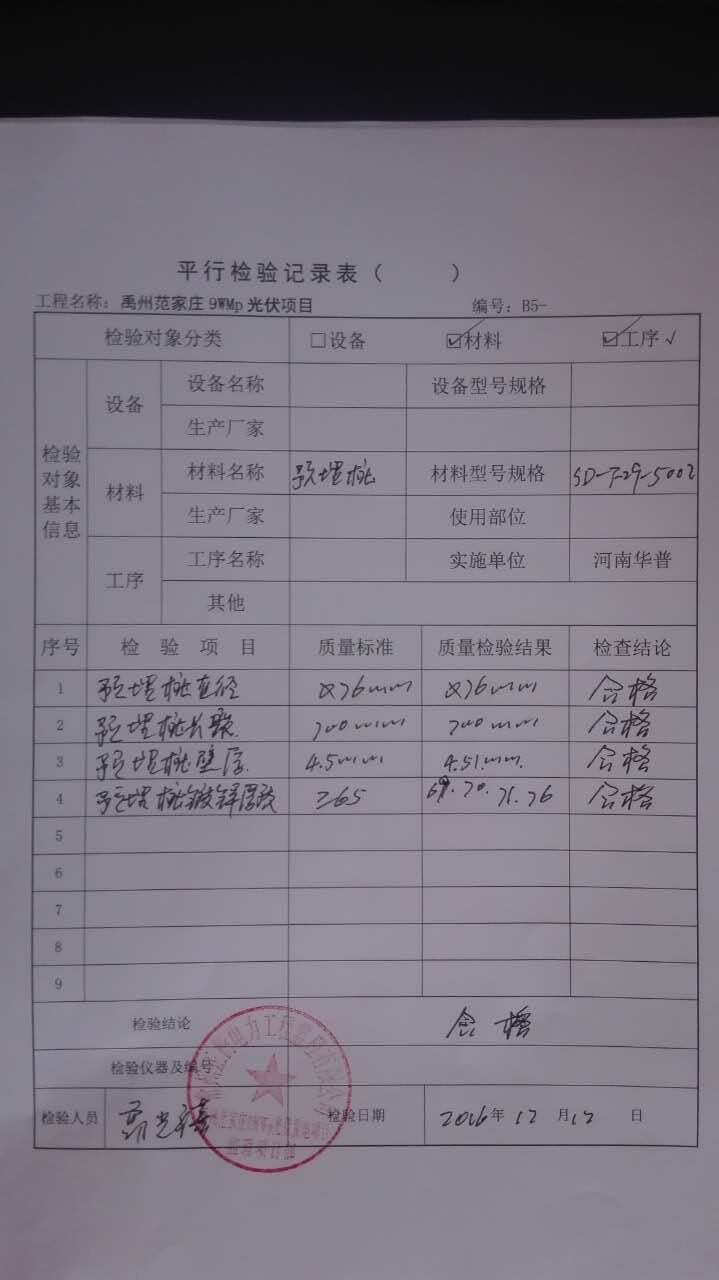 平行检验记录表（ ）
工程名称：禹州范家庄9WMp光伏项目 编号：B5-
检验对象分类 □设备 ☑材料 ☑工序√
检验对象基本信息
设备 设备名称 设备型号规格
生产厂家
材料 材料名称 预埋桩 材料型号规格 SD-T29-5002
生产厂家 使用部位
工序 工序名称 实施单位 河南华普
其他
序号 检验项目 质量标准 质量检验结果 检查结论
1 预埋桩直径 ø76mm ø76mm 合格
2 预埋桩长度 700mm 700mm 合格
3 预埋桩壁厚 4.5mm 4.51mm. 合格
4 预埋桩镀锌厚度 ≥65 69.70.71.76 合格
5
6
7
8
9
检验结论 合格
检验仪器及编号
检验人员 检验日期 2016年12月12日
监理项目部